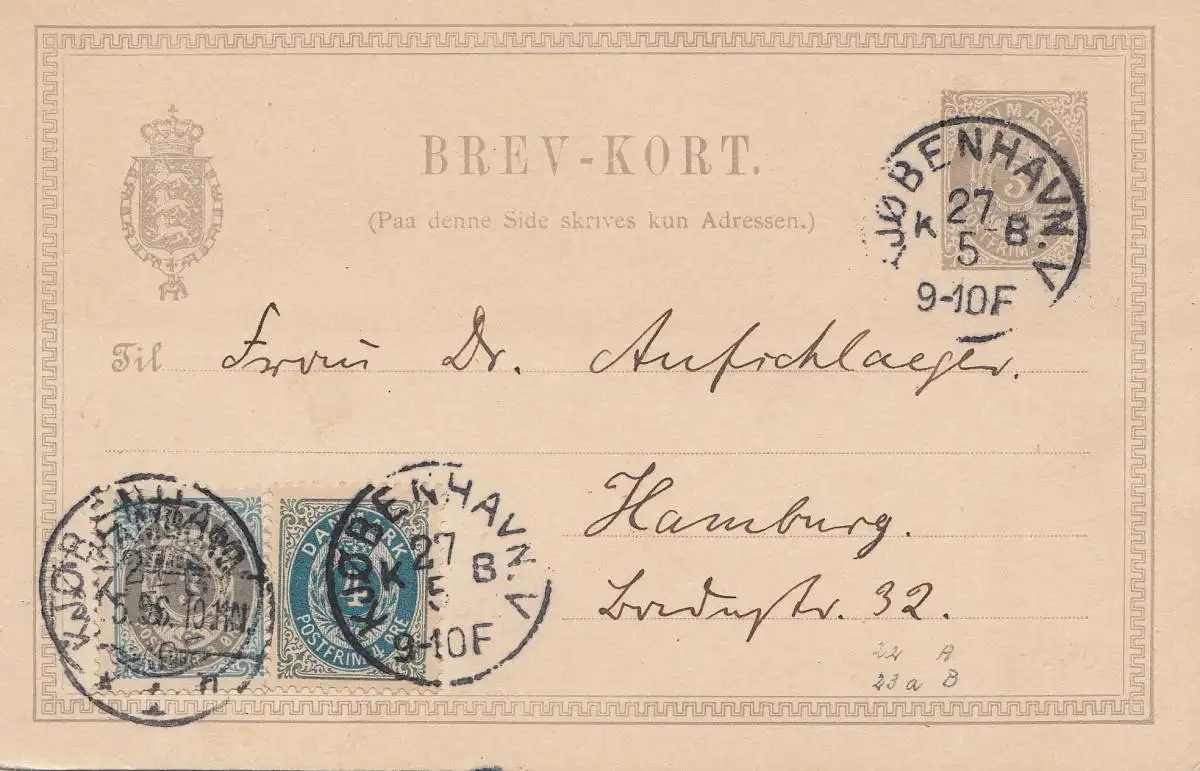 BREV-KORT.
(Paa denne Side skrives kun Adressen.)
DANMARK
3
KJØBENHAVN V.
K 27 B.
5
9-10F
Til Frau Dr. Aufschlaeger.
Hamburg.
32.
DANMARK
POSTFRIM. 4 ØRE
KJØBENHAVN.V.
K 27 B.
5
9-10F
KJØBENHAVN
5.96. 10-11N
22 A
23a B